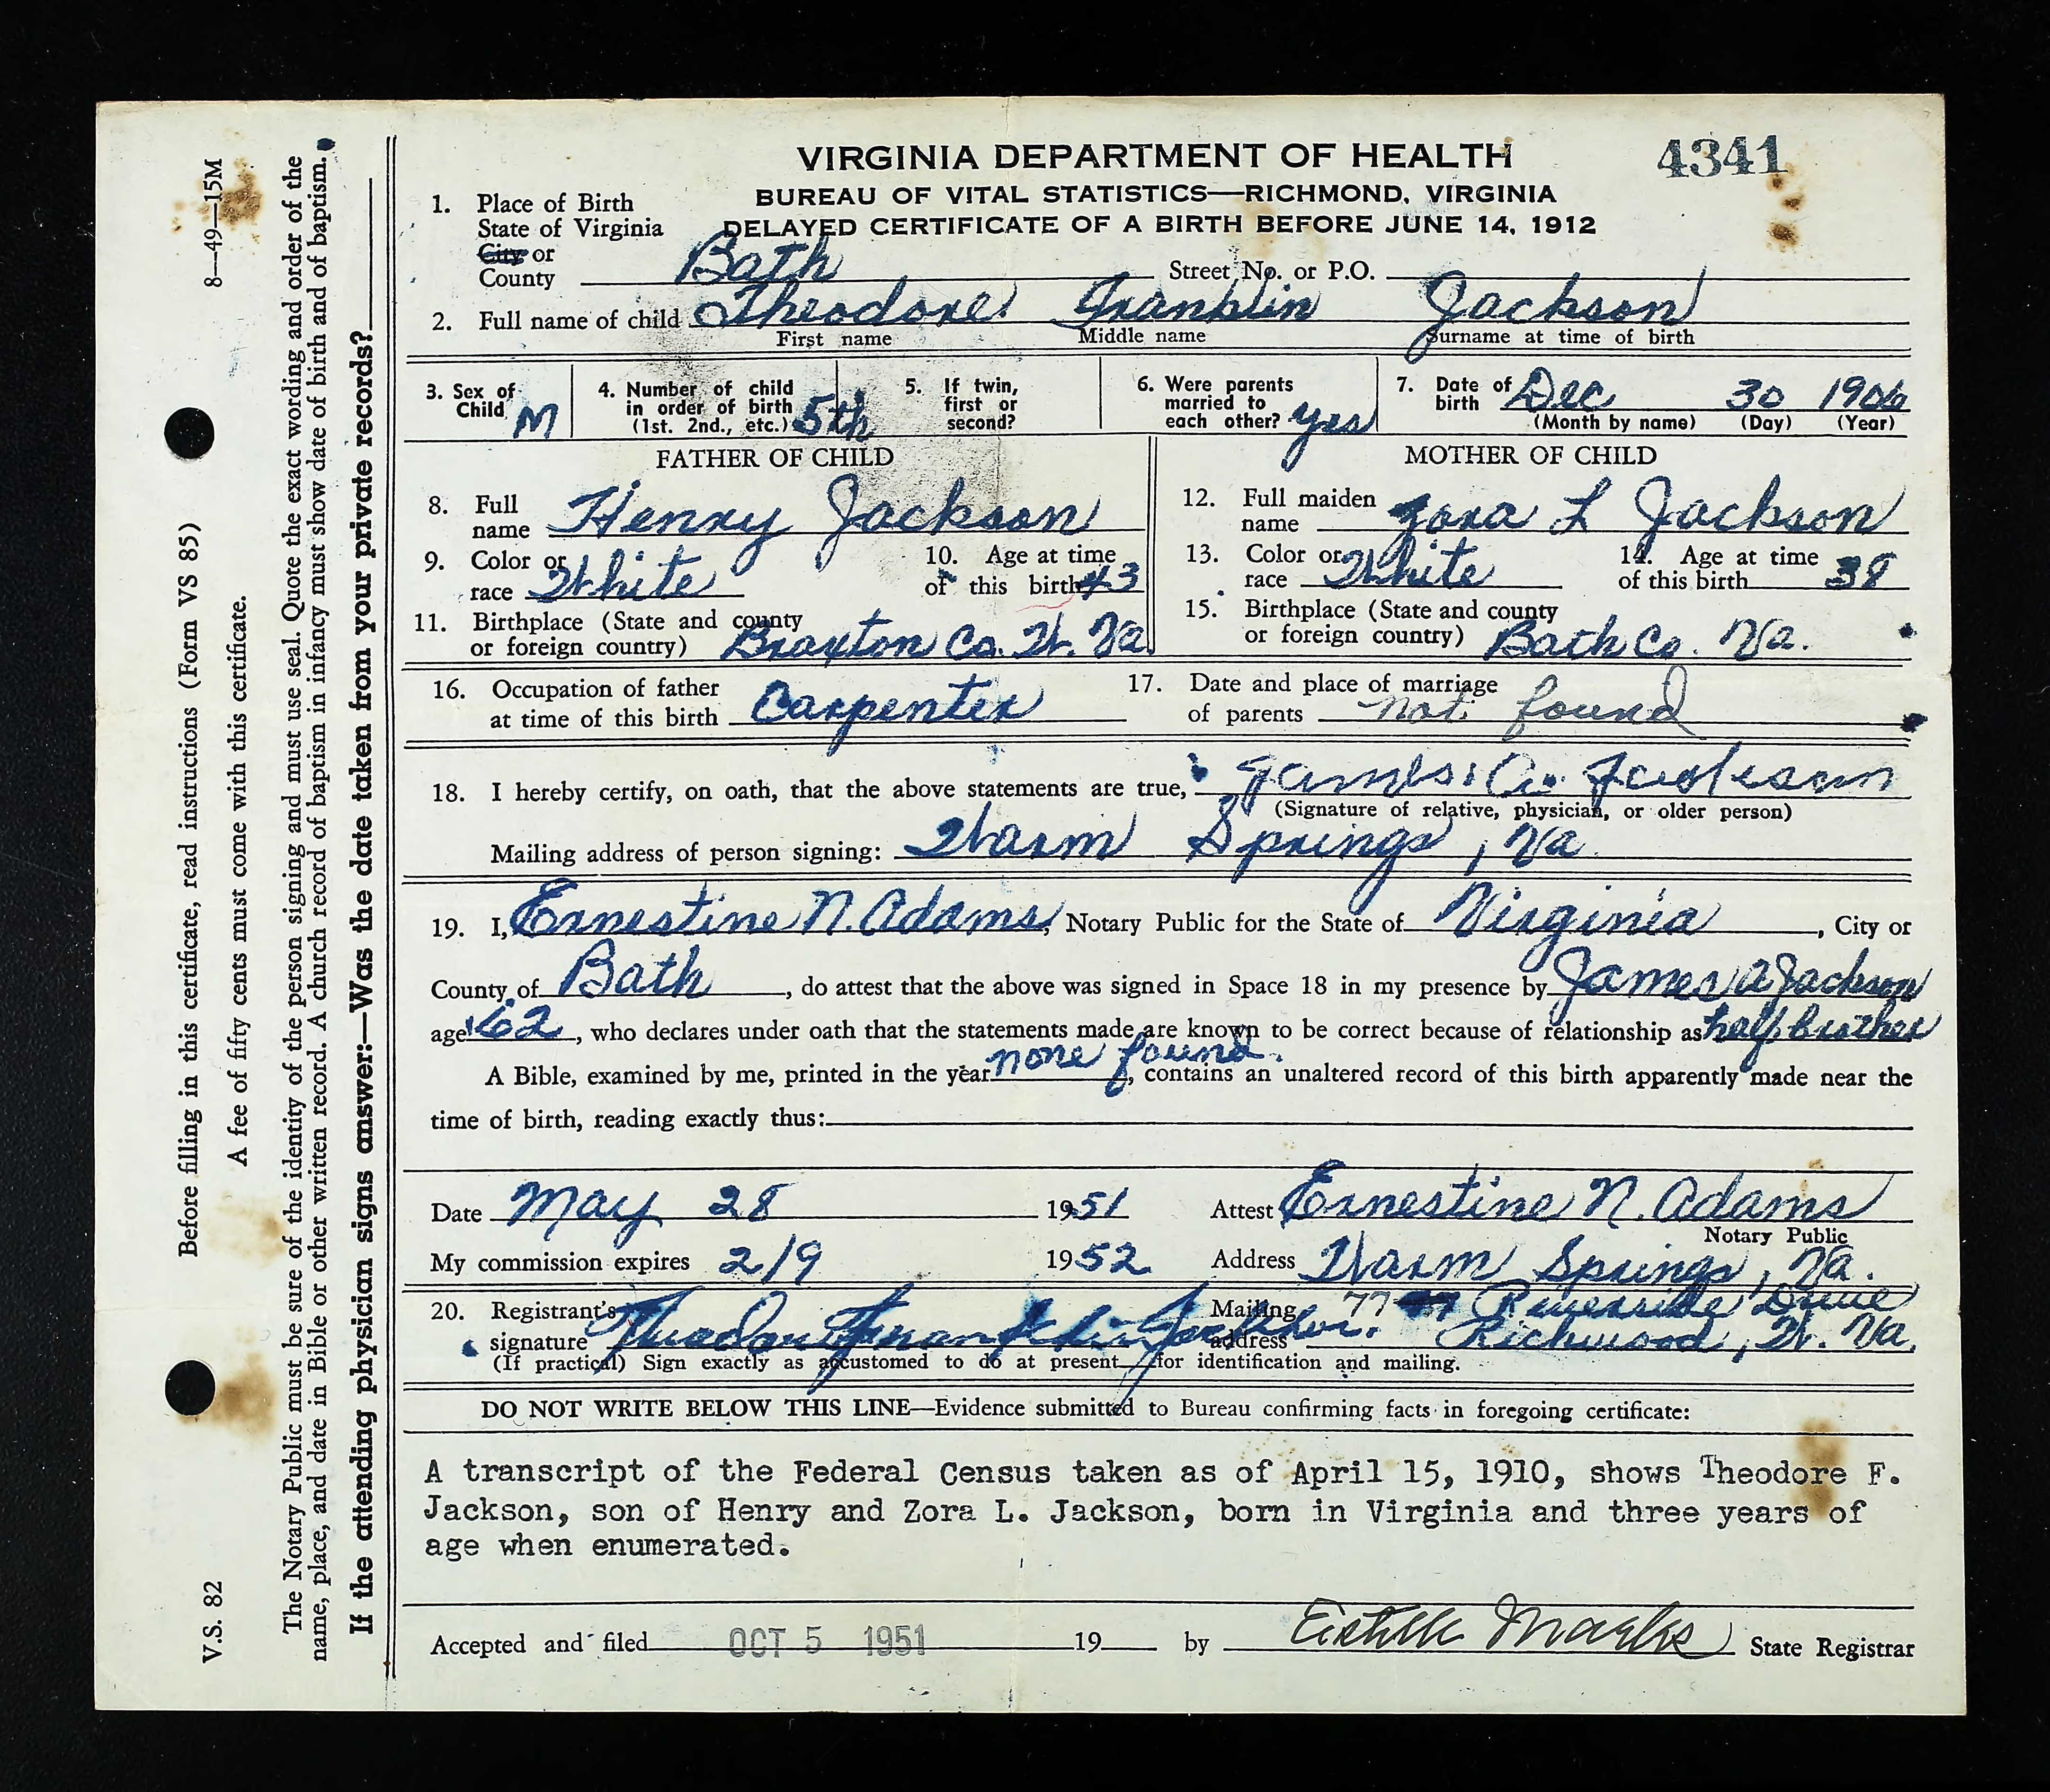 VIRGINIA DEPARTMENT OF HEALTH
4341
BUREAU OF VITAL STATISTICS—RICHMOND, VIRGINIA
DELAYED CERTIFICATE OF A BIRTH BEFORE JUNE 14, 1912
1. Place of Birth
State of Virginia
City or
County Bath Street No. or P.O.
2. Full name of child Theodore Franklin Jackson
First name Middle name Surname at time of birth
3. Sex of Child M 4. Number of child in order of birth (1st. 2nd., etc.) 5th 5. If twin, first or second? 6. Were parents married to each other? yes 7. Date of birth Dec 30 1906
(Month by name) (Day) (Year)
FATHER OF CHILD MOTHER OF CHILD
8. Full name Henry Jackson 12. Full maiden name Zora L Jackson
9. Color or race White 10. Age at time of this birth 43 13. Color or race White 14. Age at time of this birth 38
11. Birthplace (State and county or foreign country) Braxton Co. W. Va. 15. Birthplace (State and county or foreign country) Bath Co. Va.
16. Occupation of father at time of this birth Carpenter 17. Date and place of marriage of parents not found
18. I hereby certify, on oath, that the above statements are true, James A. Jackson
(Signature of relative, physician, or older person)
Mailing address of person signing: Warm Springs, Va.
19. I, Ernestine N. Adams, Notary Public for the State of Virginia, City or
County of Bath, do attest that the above was signed in Space 18 in my presence by James A Jackson
age 62, who declares under oath that the statements made are known to be correct because of relationship as half brother
A Bible, examined by me, printed in the year none found., contains an unaltered record of this birth apparently made near the
time of birth, reading exactly thus:
Date May 28 1951 Attest Ernestine N. Adams
Notary Public
My commission expires 2/9 1952 Address Warm Springs, Va.
20. Registrant's signature Theodore Franklin Jackson. Mailing address 77 Riverside Drive
Richwood, W. Va.
(If practical) Sign exactly as accustomed to do at present—for identification and mailing.
DO NOT WRITE BELOW THIS LINE—Evidence submitted to Bureau confirming facts in foregoing certificate:
A transcript of the Federal Census taken as of April 15, 1910, shows Theodore F.
Jackson, son of Henry and Zora L. Jackson, born in Virginia and three years of
age when enumerated.
Accepted and filed OCT 5 1951 19 by Estelle Marks State Registrar
V.S. 82 Before filling in this certificate, read instructions (Form VS 85) 8—49—15M
A fee of fifty cents must come with this certificate.
The Notary Public must be sure of the identity of the person signing and must use seal. Quote the exact wording and order of the
name, place, and date in Bible or other written record. A church record of baptism in infancy must show date of birth and of baptism.
If the attending physician signs answer:—Was the date taken from your private records?